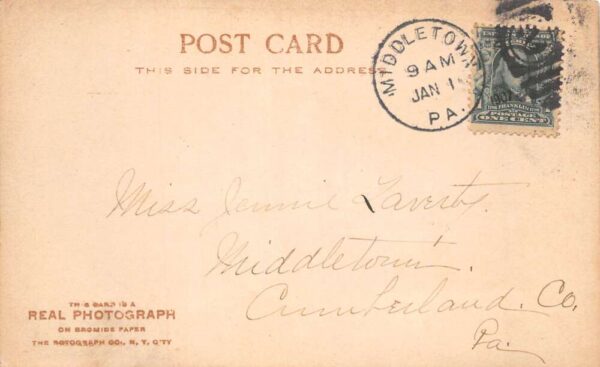 POST CARD
THIS SIDE FOR THE ADDRESS
MIDDLETOWN
9 AM
JAN 1
PA.
FRANKLIN
POSTAGE
ONE CENT
Miss Jennie Laverty.
Middletown.
Cumberland. Co.
Pa.
THIS CARD IS A
REAL PHOTOGRAPH
ON BROMIDE PAPER
THE ROTOGRAPH CO., N. Y. C'TY